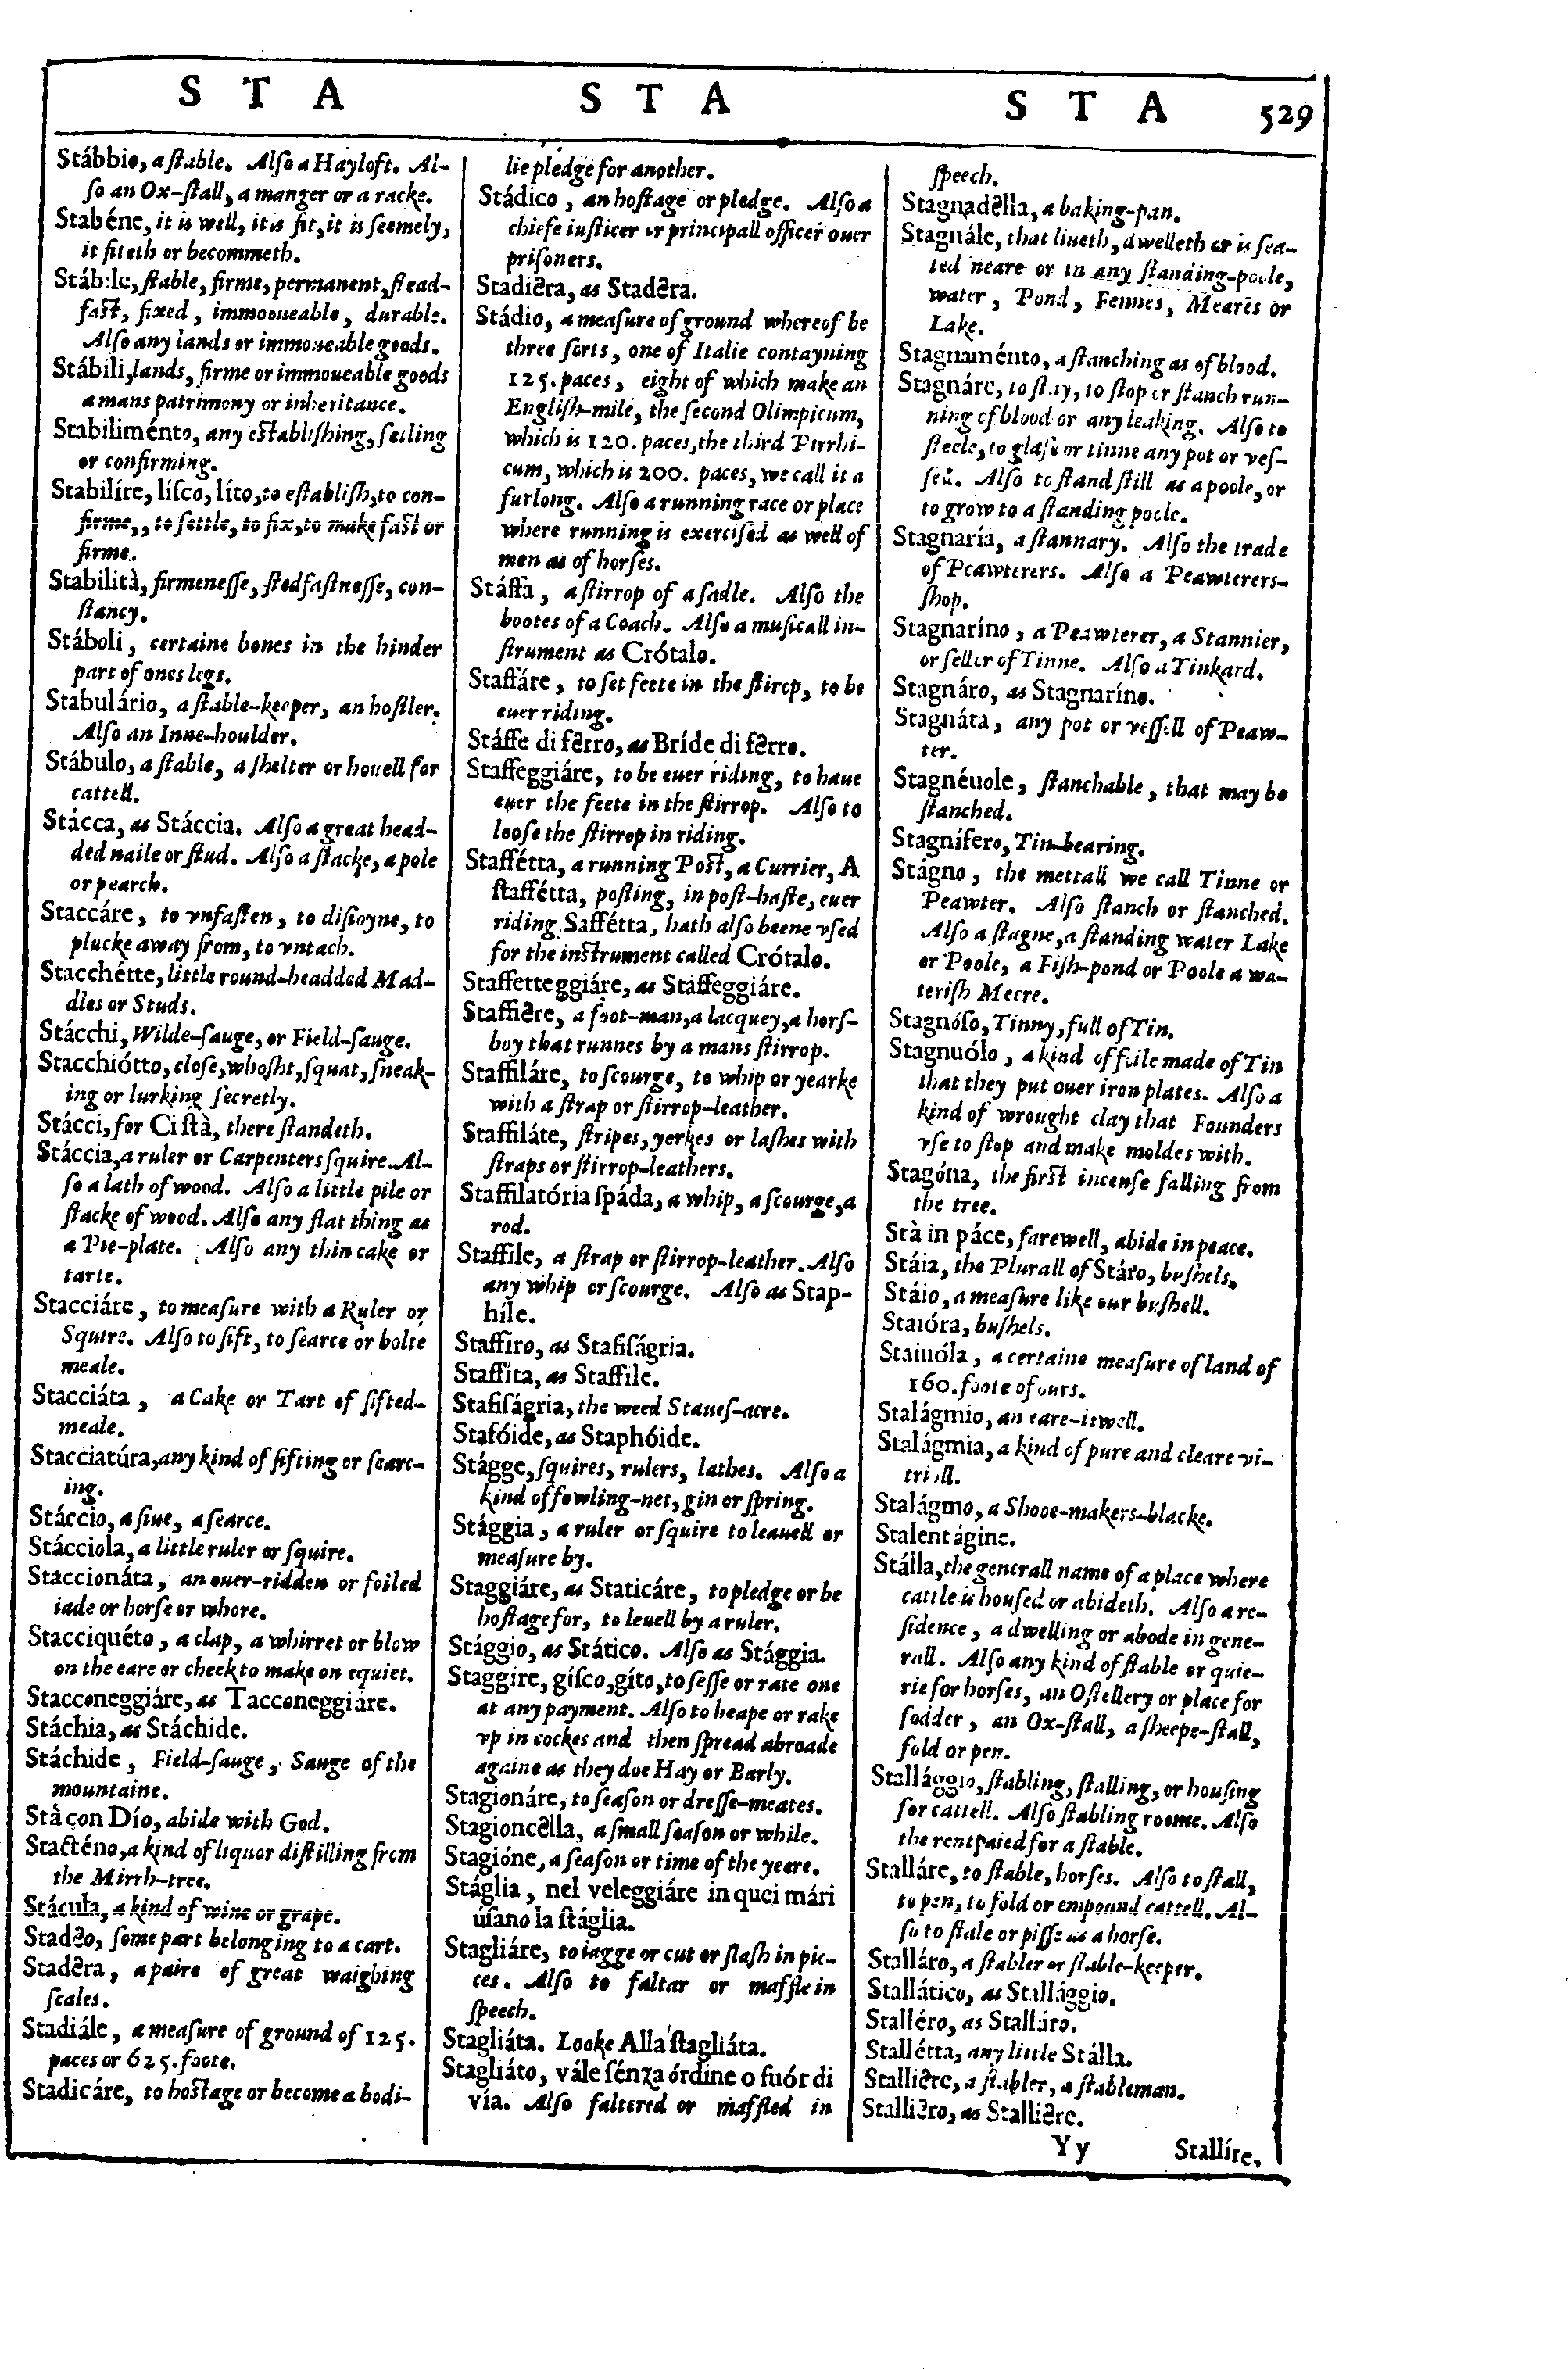 S T A
S T A
S T A 529
Stábbio, a ſtable. Alſo a Hayloft. Al-
ſo an Ox-ſtall, a manger or a racke.
Stabéne, it is well, it is fit, it is ſeemely,
it fiteth or becommeth.
Stábile, ſtable, firme, permanent, ſtead-
faſt, fixed, immooueable, durable.
Alſo any lands or immoueable goods.
Stábili, lands, firme or immoueable goods
a mans patrimony or inheritance.
Stabiliménto, any eſtabliſhing, ſetling
or confirming.
Stabilíre, líſco, líto, to eſtabliſh, to con-
firme,, to ſettle, to fix, to make faſt or
firme.
Stabilità, firmeneſſe, ſtedfaſtneſſe, con-
ſtancy.
Stáboli, certaine bones in the hinder
part of ones legs.
Stabulário, a ſtable-keeper, an hoſtler.
Alſo an Inne-houlder.
Stábulo, a ſtable, a ſhelter or houell for
cattell.
Stácca, as Stáccia. Alſo a great head-
ded naile or ſtud. Alſo a ſtacke, a pole
or pearch.
Staccáre, to vnfaſten, to diſioyne, to
plucke away from, to vntach.
Stacchétte, little round-headded Mad-
dles or Studs.
Stácchi, Wilde-ſauge, or Field-ſauge.
Stacchiótto, cloſe, whoſht, ſquat, ſneak-
ing or lurking ſecretly.
Stácci, for Ci ſtà, there ſtandeth.
Stáccia, a ruler or Carpenters ſquire. Al-
ſo a lath of wood. Alſo a little pile or
ſtacke of wood. Alſo any flat thing as
a Pie-plate. Alſo any thin cake or
tarte.
Stacciáre, to meaſure with a Ruler or
Squire. Alſo to ſift, to ſearce or bolte
meale.
Stacciáta, a Cake or Tart of ſifted-
meale.
Stacciatúra, any kind of ſifting or ſearc-
ing.
Stáccio, a ſiue, a ſearce.
Stácciola, a little ruler or ſquire.
Staccionáta, an ouer-ridden or foiled
iade or horſe or whore.
Stacciquéto, a clap, a whirret or blow
on the eare or cheek to make on equiet.
Stacconeggiáre, as Tacconeggiáre.
Stáchia, as Stáchide.
Stáchide, Field-ſauge, Sauge of the
mountaine.
Stà con Dío, abide with God.
Stacténo, a kind of liquor diſtilling from
the Mirrh-tree.
Stácula, a kind of wine or grape.
Stadêo, ſome part belonging to a cart.
Stadêra, a paire of great waighing
ſcales.
Stadiále, a meaſure of ground of 125.
paces or 625. foote.
Stadicáre, to hoſtage or become a bodi-
lie pledge for another.
Stádico, an hoſtage or pledge. Alſo a
chiefe iuſticer or principall officer ouer
priſoners.
Stadiêra, as Stadêra.
Stádio, a meaſure of ground whereof be
three ſorts, one of Italie contayning
125. paces, eight of which make an
Engliſh-mile, the ſecond Olimpicum,
which is 120. paces, the third Pirrhi-
cum, which is 200. paces, we call it a
furlong. Alſo a running race or place
where running is exerciſed as well of
men as of horſes.
Stáffa, a ſtirrop of a ſadle. Alſo the
bootes of a Coach. Alſo a muſicall in-
ſtrument as Crótalo.
Staffáre, to ſet feete in the ſtirop, to be
euer riding.
Stáffe di fêrro, as Bríde di fêrro.
Staffeggiáre, to be euer riding, to haue
euer the feete in the ſtirrop. Alſo to
looſe the ſtirrop in riding.
Staffétta, a running Poſt, a Currier, A
ſtaffétta, poſting, in poſt-haſte, euer
riding. Saffétta, hath alſo beene vſed
for the inſtrument called Crótalo.
Staffetteggiáre, as Staffeggiáre.
Staffiêre, a foot-man, a lacquey, a horſ-
boy that runnes by a mans ſtirrop.
Staffiláre, to ſcourge, to whip or yearke
with a ſtrap or ſtirrop-leather.
Staffiláte, ſtripes, yerkes or laſhes with
ſtraps or ſtirrop-leathers.
Staffilatória ſpáda, a whip, a ſcourge, a
rod.
Staffíle, a ſtrap or ſtirrop-leather. Alſo
any whip or ſcourge. Alſo as Stap-
híle.
Staffíro, as Stafiſágria.
Staffíta, as Staffíle.
Stafiſágria, the weed Staueſ-acre.
Stafóide, as Staphóide.
Stágge, ſquires, rulers, lathes. Alſo a
kind of fowling-net, gin or ſpring.
Stággia, a ruler or ſquire to leauell or
meaſure by.
Staggiáre, as Staticáre, to pledge or be
hoſtage for, to leuell by a ruler.
Stággio, as Stático. Alſo as Stággia.
Staggíre, gíſco, gíto, to ſeſſe or rate one
at any payment. Alſo to heape or rake
vp in cockes and then ſpread abroade
againe as they doe Hay or Barly.
Stagionáre, to ſeaſon or dreſſe-meates.
Stagioncêlla, a ſmall ſeaſon or while.
Stagióne, a ſeaſon or time of the yeere.
Stáglia, nel veleggiáre in quei mári
úſano la ſtáglia.
Stagliáre, to iagge or cut or ſlaſh in pie-
ces. Alſo to faltar or maffle in
ſpeech.
Stagliáta. Looke Alla ſtagliáta.
Stagliáto, vále ſénza órdine o fuór di
vía. Alſo faltered or maffled in
ſpeech.
Stagnadêlla, a baking-pan.
Stagnále, that liueth, dwelleth or is ſea-
ted neare or in any ſtanding-poole,
water, Pond, Fennes, Meares or
Lake.
Stagnaménto, a ſtanching as of blood.
Stagnáre, to ſtay, to ſtop or ſtanch run-
ning of blood or any leaking. Alſo to
ſteele, to glaſe or tinne any pot or veſ-
ſell. Alſo to ſtand ſtill as a poole, or
to grow to a ſtanding poole.
Stagnaría, a ſtannary. Alſo the trade
of Peawterers. Alſo a Peawterers-
ſhop.
Stagnaríno, a Peawterer, a Stannier,
or ſeller of Tinne. Alſo a Tinkard.
Stagnáro, as Stagnaríno.
Stagnáta, any pot or veſſell of Peaw-
ter.
Stagnéuole, ſtanchable, that may be
ſtanched.
Stagnífero, Tin-bearing.
Stágno, the mettall we call Tinne or
Peawter. Alſo ſtanch or ſtanched.
Alſo a ſtagne, a ſtanding water Lake
or Poole, a Fiſh-pond or Poole a wa-
teriſh Meere.
Stagnóſo, Tinny, full of Tin.
Stagnuólo, a kind of foile made of Tin
that they put ouer iron plates. Alſo a
kind of wrought clay that Founders
vſe to ſtop and make moldes with.
Stagóna, the firſt incenſe falling from
the tree.
Stà in páce, farewell, abide in peace.
Stáia, the Plurall of Stáro, buſhels.
Stáio, a meaſure like our buſhell.
Staióra, buſhels.
Staiuóla, a certaine meaſure of land of
160. foote of ours.
Stalágmio, an eare-iewell.
Stalágmia, a kind of pure and cleare vi-
triill.
Stalágmo, a Shooe-makers-blacke.
Stalentágine.
Stálla, the generall name of a place where
cattle is houſed or abideth. Alſo a re-
ſidence, a dwelling or abode in gene-
rall. Alſo any kind of ſtable or quie-
rie for horſes, an Oſtellery or place for
fodder, an Ox-ſtall, a ſheepe-ſtall,
fold or pen.
Stallággio, ſtabling, ſtalling, or houſing
for cattell. Alſo ſtabling roome. Alſo
the rent paied for a ſtable.
Stalláre, to ſtable, horſes. Alſo to ſtall,
to pen, to fold or empound cattell. Al-
ſo to ſtale or piſſe as a horſe.
Stalláro, a ſtabler or ſtable-keeper.
Stallático, as Stallággio.
Stalléro, as Stalláro.
Stallétta, any little Stálla.
Stalliêre, a ſtabler, a ſtableman.
Stalliêro, as Stalliêre.
Y y Stallíre,